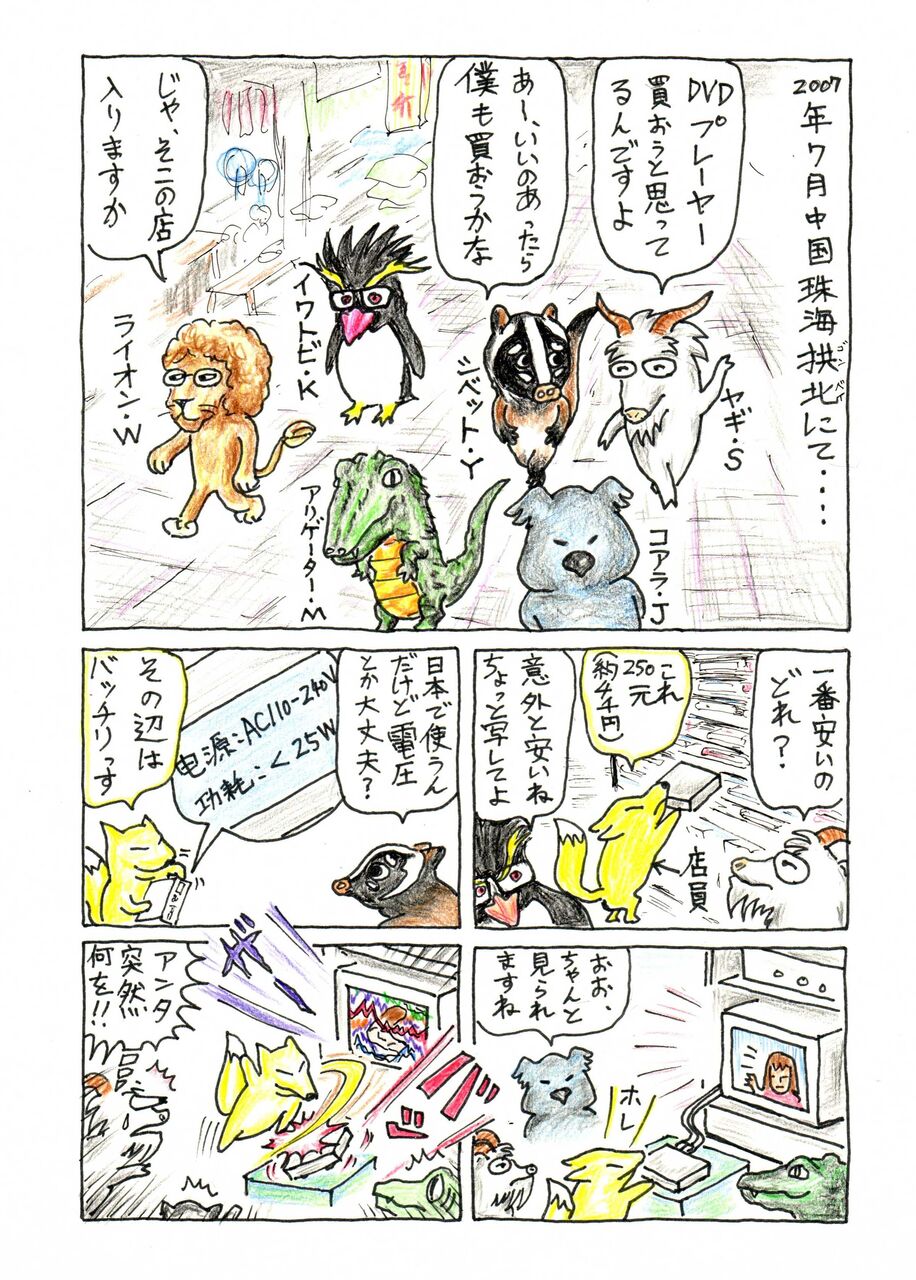 2007年7月中国珠海拱北にて・・・・
ゴンベイ
DVD
プレーヤー
買おうと思って
るんですよ
あ〜、いいのあったら
僕も買おうかな
じゃ、そこの店
入りますか
ヤギ・S
シベット・Y
イワトビ・K
ライオン・W
コアラ・J
アリゲーター・M
一番安いの
どれ?
これ
250元
(約4千円)
意外と安いね
ちょっと写してよ
←店員
日本で使うん
だけど電圧
とか大丈夫?
电源:AC110-240V
功耗:<25W
その辺は
バッチリっす
おお、
ちゃんと
見られ
ますね
ホレ
バシ
アンタ
突然
何を!!